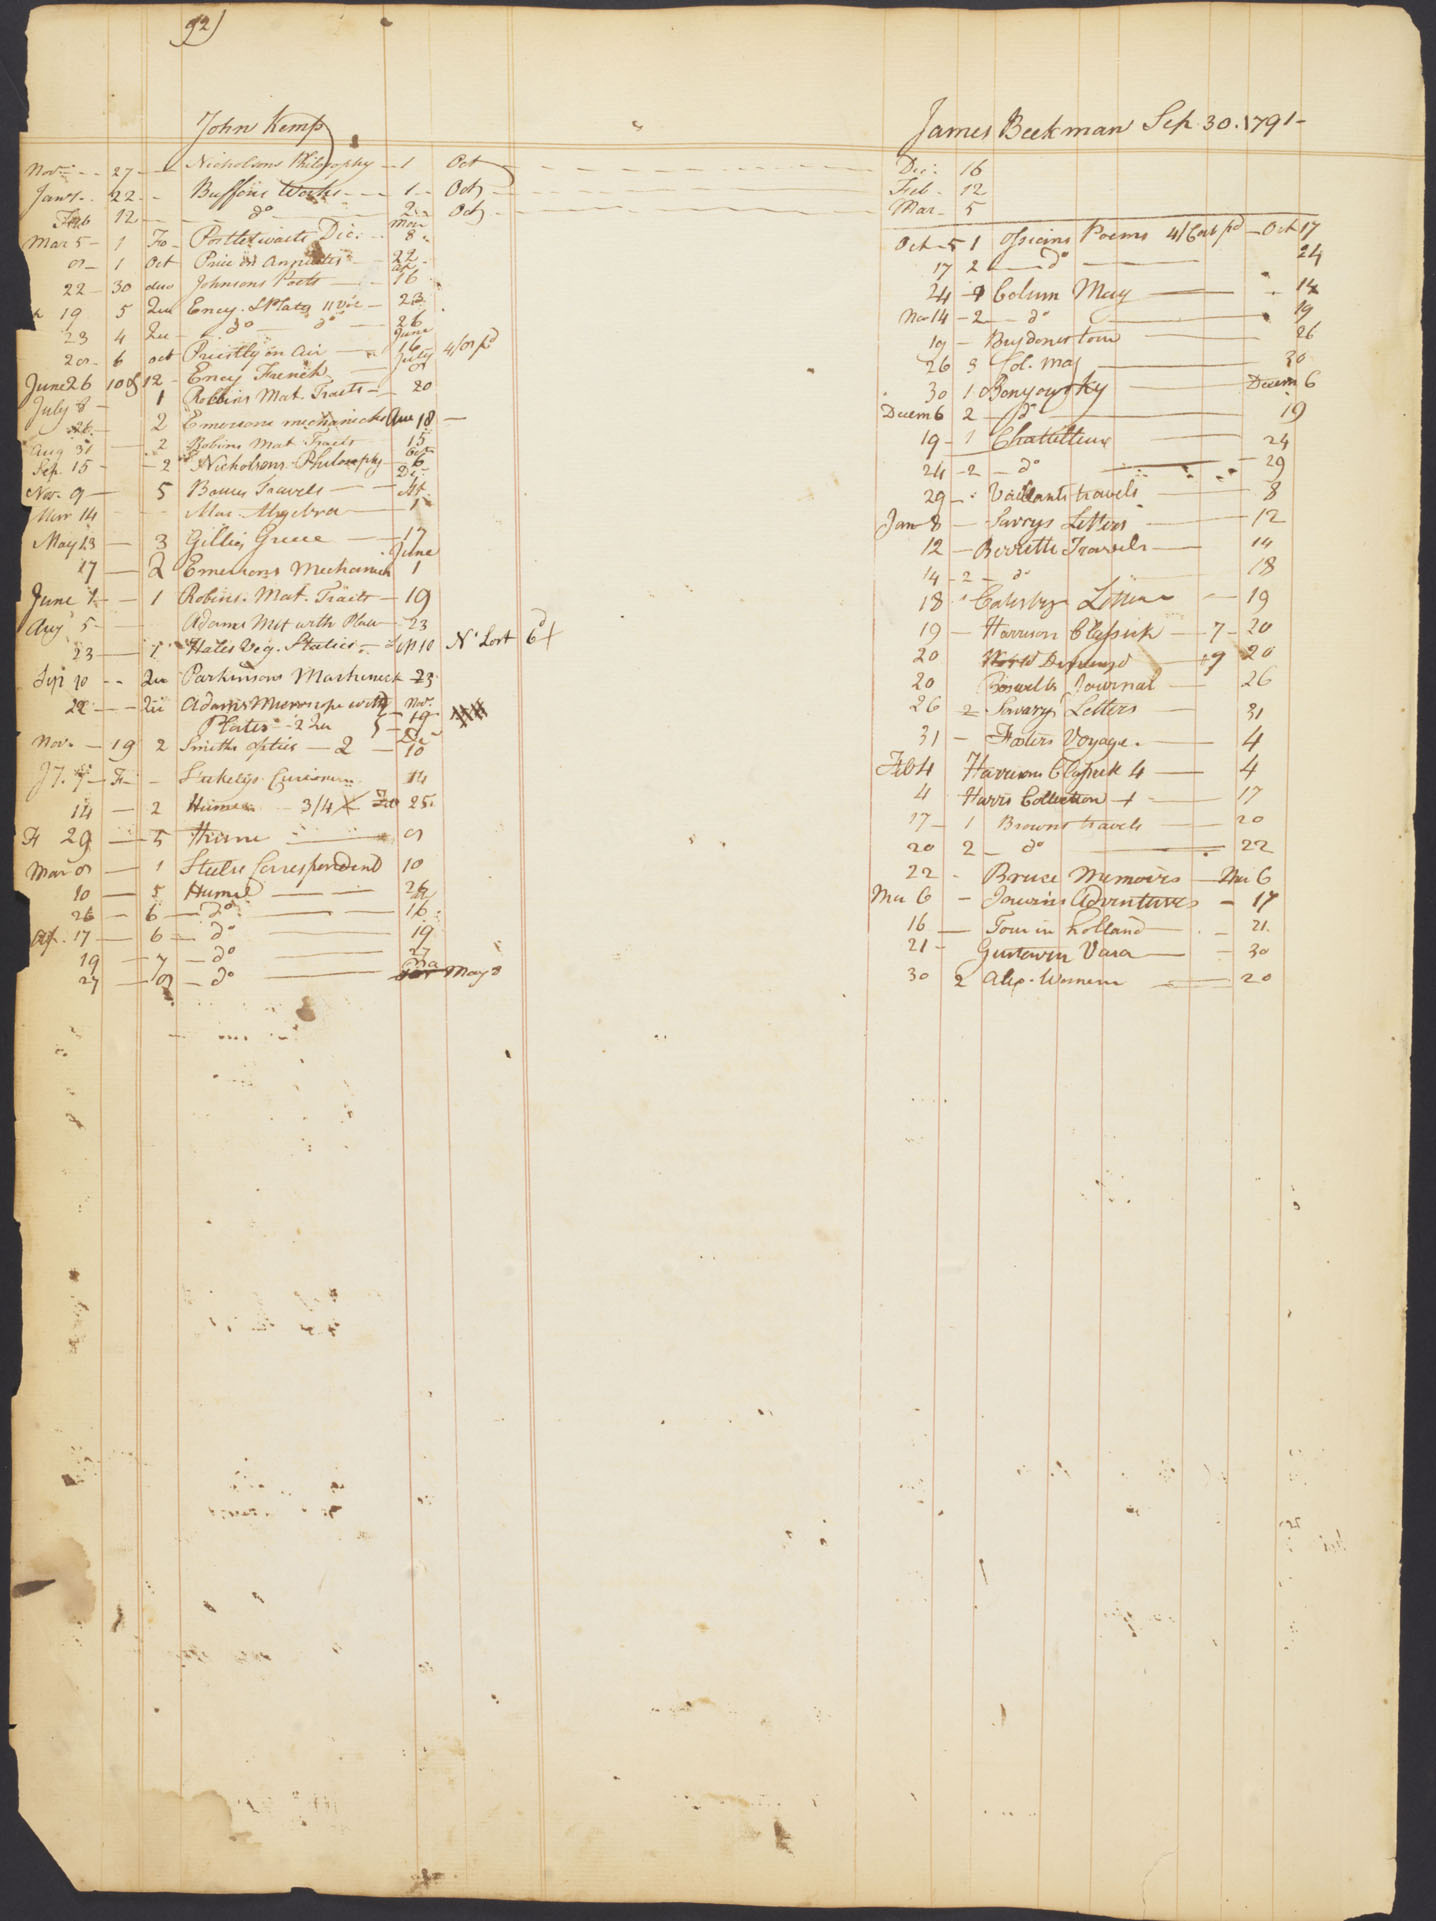 92)
John Kemp
Nov. 27 Nicholsons Philosophy 1 Oct
Jany. 22 Buffons Works 1 Oct
Feb 12 do 2 Oct
Mar 5 1 Fo Postletwaits Dic. Mar 8
8 1 Oct Price on Annuities 22
22 30 duo Johnsons Poets 16
19 5 Qu Ency. & Plates 11 Vol 23
23 4 Qu do do 26
28 6 oct Priestly on Air June 16 4/8 pd
June 26 10 & 12 Ency French July 8
July 8 1 Robbins Mat. Tracts 20
26 2 Emersons mechanicks Aug 18
Aug 31 2 Robins Mat Tracts 15
Sep. 15 2 Nicholsons Philosophy Oct 6
Nov. 9 5 Bruces Travels
Mar 14 Mac. Algebra 1
May 13 3 Gillies Greece 17
17 2 Emersons Mechanick June 1
June 1 1 Robins. Mat. Tracts 19
Aug 5 Adams Met with Plate 23
23 1 Hales Veg. Staticks Sep 10 N Lost 6d
Sep 10 Qu Parkinsons Machineck 23
22 Qu Adams Microscope with Nov.
Plates 2 Qu 19
Nov. 19 2 Smiths optics 2 Dec 10
Stukelys Curiorum 14
14 2 Humes 3/4 Feb 25
F 29 5 Hume 8
Mar 8 1 Steeles Correspondend 10
10 5 Humes 26
26 6 do 16
Ap. 17 6 do 19
19 7 do 27
27 8 do May 8
James Beekman Sep. 30. 1791
Dec. 16
Feb. 12
Mar. 5
Oct 5 1 Ossians Poems pd Oct 17
17 2 do 24
24 Colum Mag 14
Nov 14 2 do 19
19 Brydones tour 26
26 3 Col. mag 30
30 1 Benyowsky Decem 6
Decem 6 2 do 19
19 1 24
24 2 do 29
29 Vaillants travels 8
Jan 8 Savrys Letters 12
12 Berrette Travels 14
14 2 do 18
18 Letters 19
19 Harrison Classick 7 20
20 World Displayd 9 20
20 Boswells Journal 26
26 2 Savarys Letters 31
31 Fosters Voyage. 4
Feb 4 Harrisons Classick 4 4
4 Harris Collection 17
17 1 Browns travels 20
20 2 do 22
22 Bruce Memoirs Mar 6
Mar 6 Adventures 17
16 Tour in holland 21
21 Gustavus Vasa 30
30 2 Alex. Womens 20